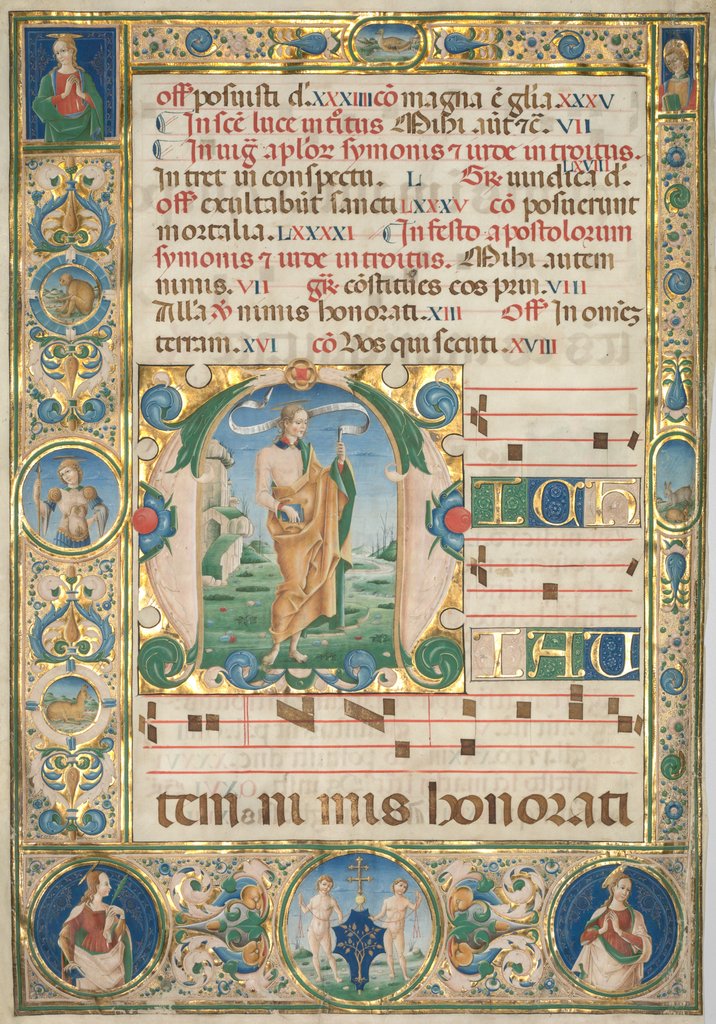 off posuisti d'. XXXIIII cō magna ē glia. XXXV
In scē luce introitus Mihi aūt ⁊c. VII
In uig' aplor symonis ⁊ iude introitus.
Intret in conspectu. L Gr̄ uindica d'. LXVIII
off exultabūt sancti LXXXV cō posuerunt
mortalia. LXXXXI In festo apostolorum
symonis ⁊ iude introitus. Mihi autem
nimis. VII gr̄ cōstitues eos prin. VIII
Alla ℣ nimis honorati. XIII Off In omēz
terram. XVI cō Vos qui secuti. XVIII
M IChI AU
tem ni mis honorati